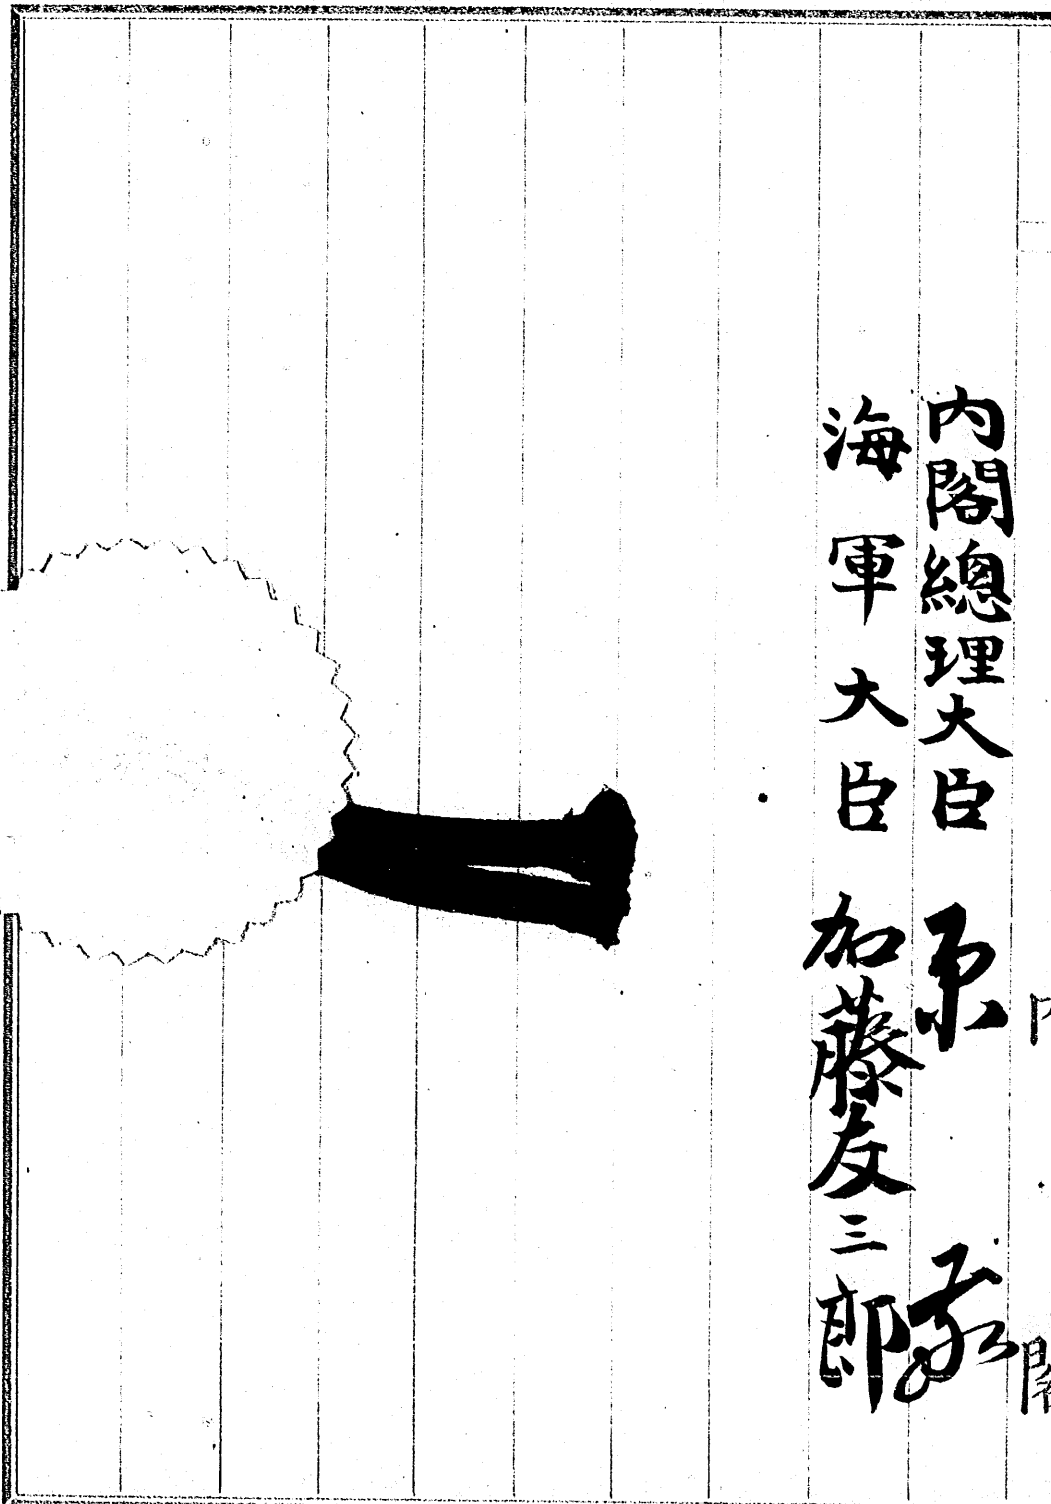 内閣
内閣總理大臣 原 敬
海軍大臣 加藤友三郎